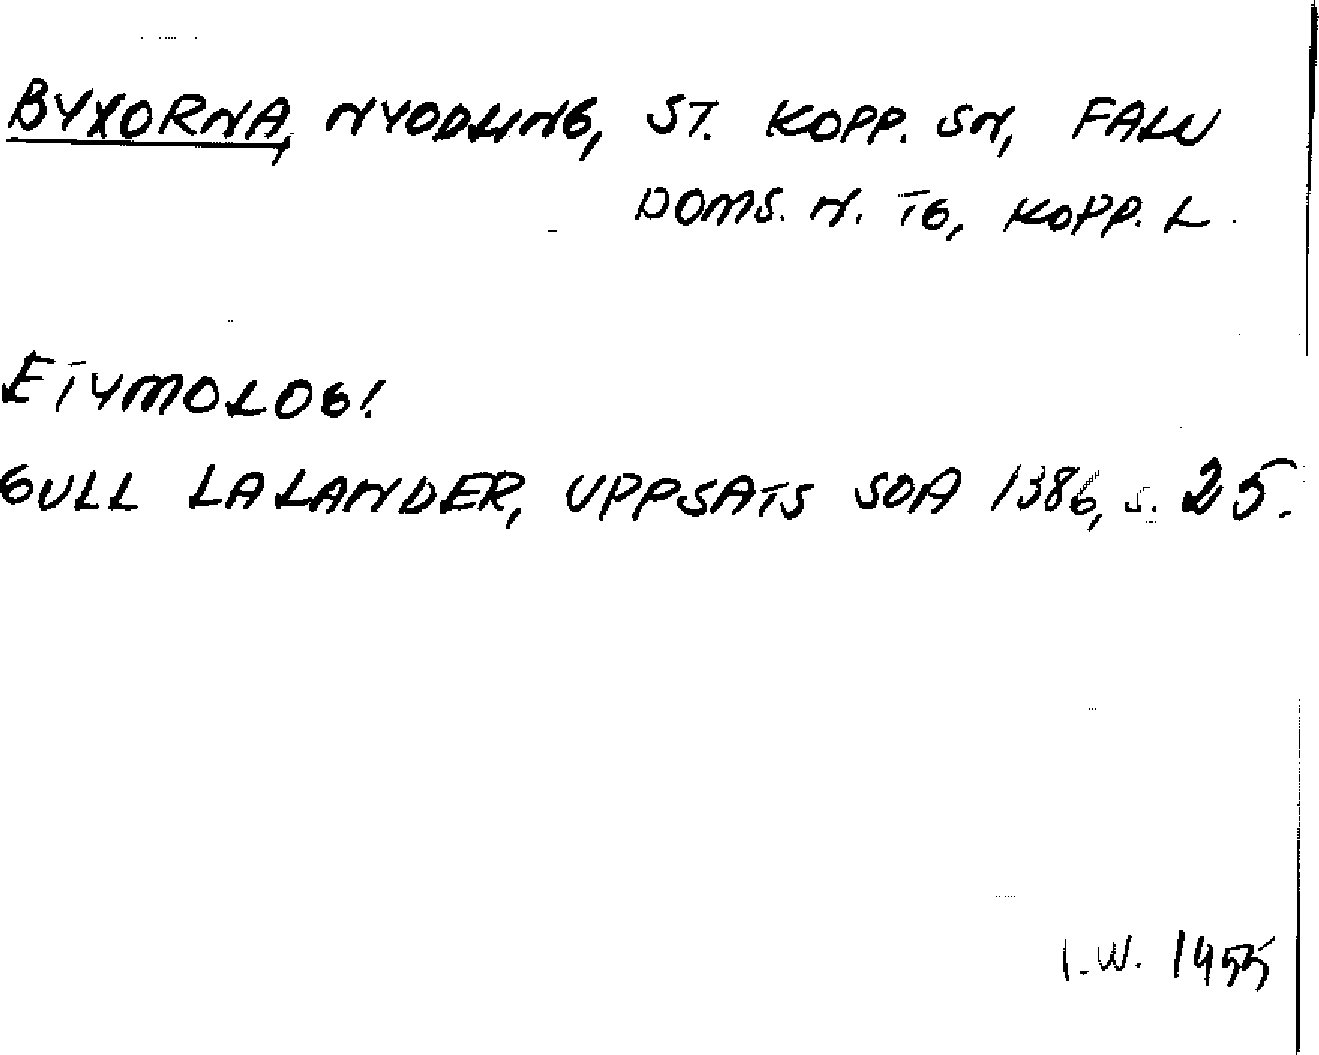 BYXORNA, NYODLING, ST. KOPP. SN, FALU
DOMS. N. TG, KOPP. L.
ETYMOLOGI.
GULL LALANDER, UPPSATS SOA 1386, S. 25.
I.W. 1955